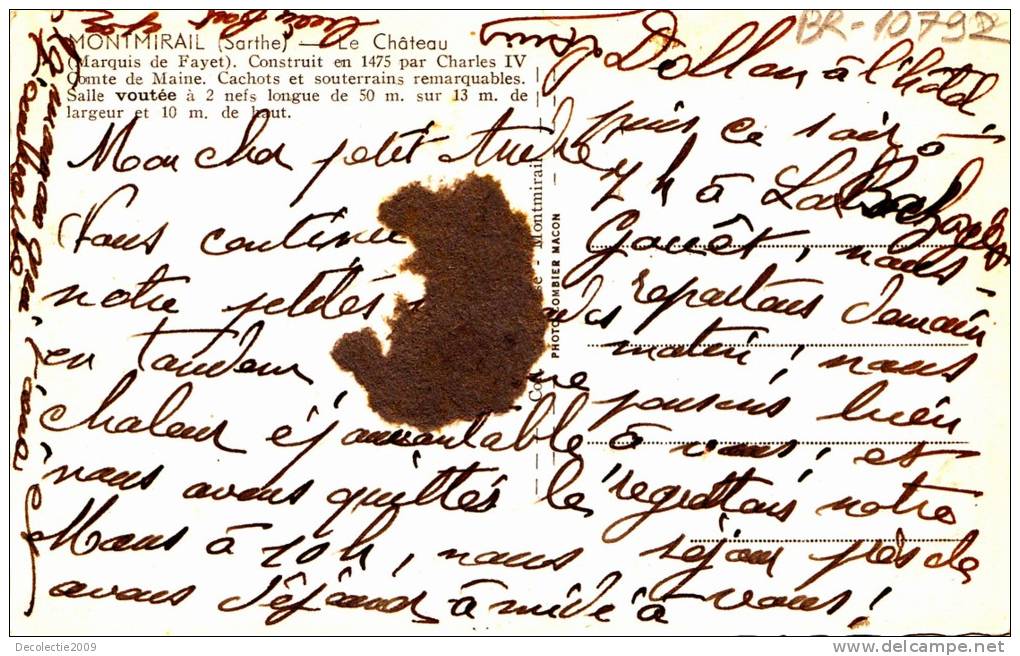 BR-10792
MONTMIRAIL (Sarthe) — Le Château
(Marquis de Fayet). Construit en 1475 par Charles IV
Comte de Maine. Cachots et souterrains remarquables.
Salle voutée à 2 nefs longue de 50 m. sur 13 m. de
largeur et 10 m. de haut.
Mon cher petit André
Nous
notre petites
en tandem
chaleur épouvantable
nous avons quittés le
Mans à 10h, nous
avons déjeuné à midi à
Dollon à l'hôtel
puis ce soir à
7 h à La Bazoge
Gouët, nous
repartons demain
matin; nous
pensons bien
à vous; et
regrettons notre
séjour près de
vous!
- Montmirail
PHOTO COMBIER MACON
Decolectie2009
delcampe.net